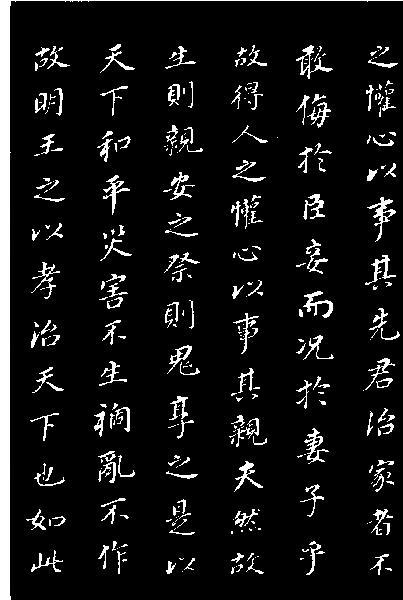 之懽心以事其先君治家者不
敢侮於臣妾而况於妻子乎
故得人之懽心以事其親夫然故
生則親安之祭則鬼享之是以
天下和平災害不生禍亂不作
故明王之以孝治天下也如此